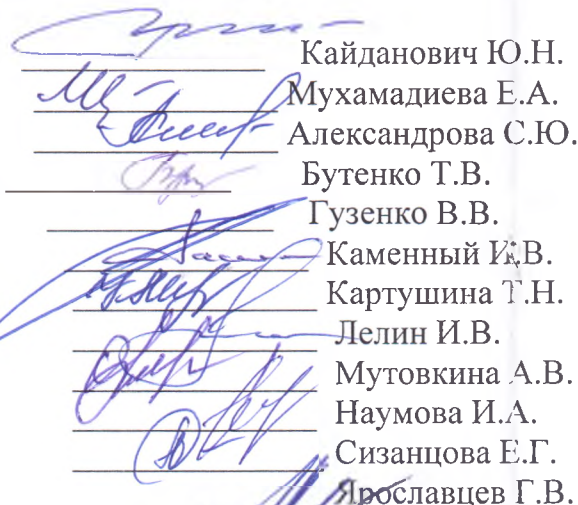 Кайданович Ю.Н.
Мухамадиева Е.А.
Александрова С.Ю.
Бутенко Т.В.
Гузенко В.В.
Каменный И.В.
Картушина Т.Н.
Лелин И.В.
Мутовкина А.В.
Наумова И.А.
Сизанцова Е.Г.
Ярославцев Г.В.